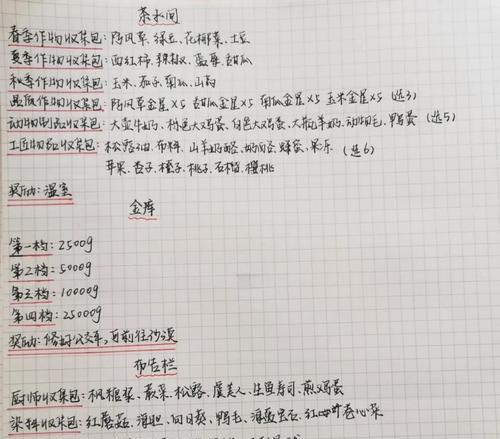 茶水间
春季作物收集包：防风草、绿豆、花椰菜、土豆
夏季作物收集包：西红柿、辣椒、蓝莓、甜瓜
秋季作物收集包：玉米、茄子、南瓜、山药
品质作物收集包：防风草金星×5 甜瓜金星×5 南瓜金星×5 玉米金星×5（选3）
动物制品收集包：大壶牛奶、棕色大鸡蛋、白色大鸡蛋、大瓶羊奶、动物毛、鸭蛋（选5）
工匠物品收集包：松露油、布料、山羊奶酪、奶酪、蜂蜜、果冻（选6）
苹果、杏子、橙子、桃子、石榴、樱桃
奖励：温室
金库
第一档：2500g
第2档：5000g
第三档：10000g
第四档：25000g
奖励：修好公交车，可前往沙漠
布告栏
厨师收集包：枫糖浆、蕨菜、松露、虞美人、生鱼寿司、煎鸡蛋
染料收集包：红蘑菇、海胆、向日葵、鸭毛、海蓝宝石、红叶卷心菜